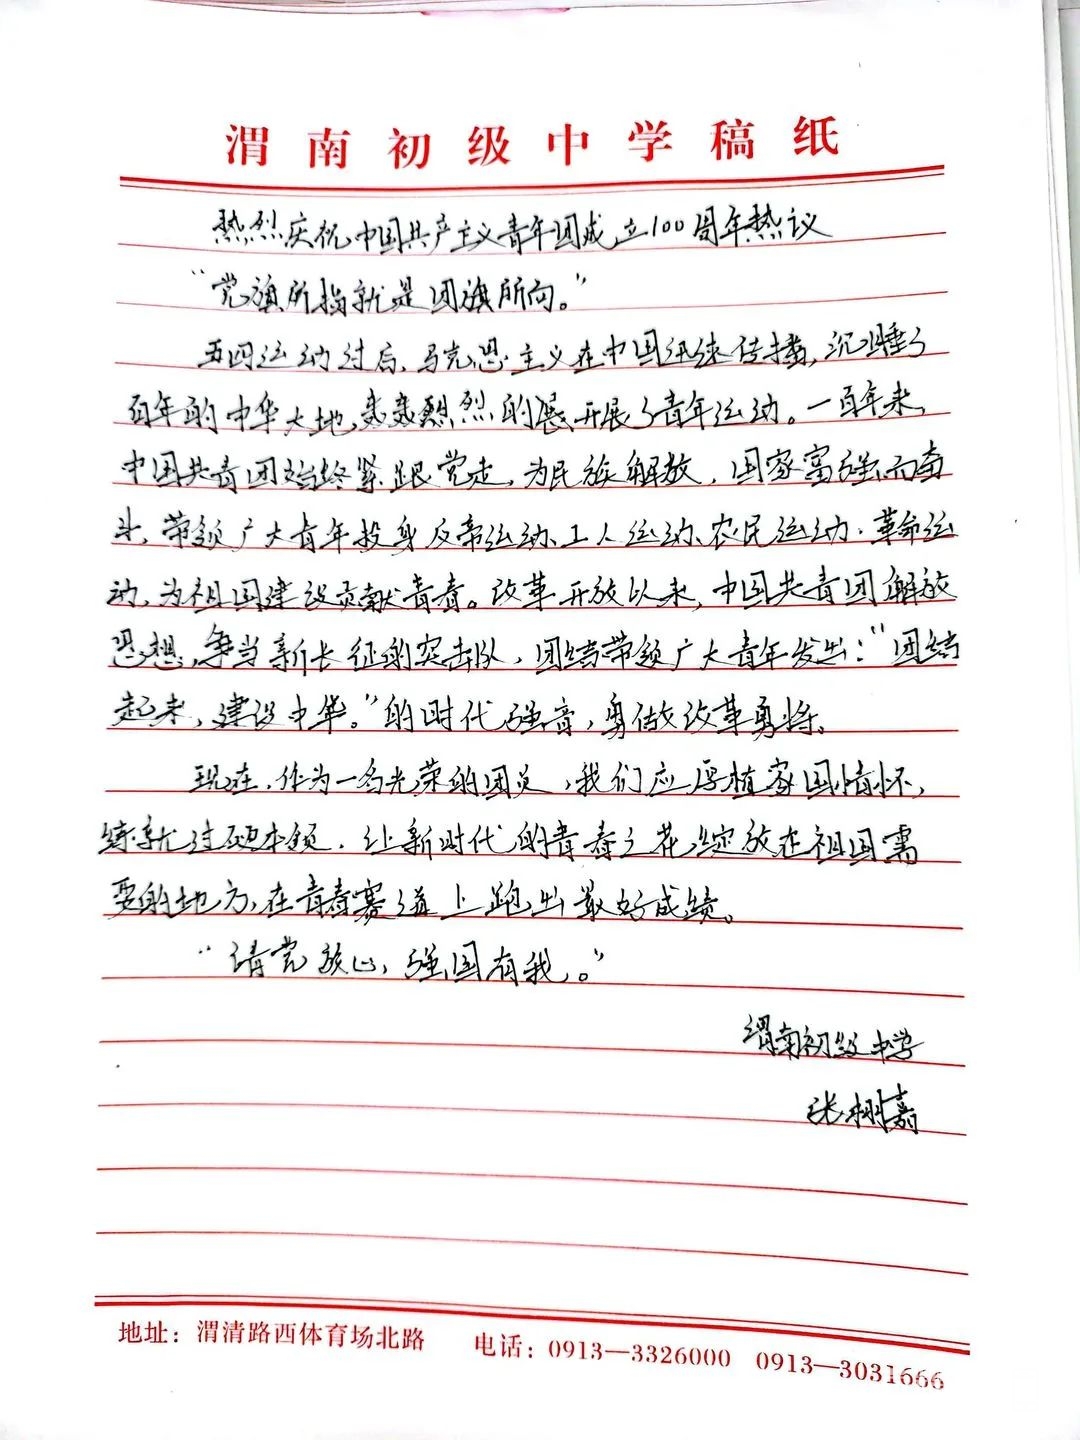 渭南初级中学稿纸
热烈庆祝中国共产主义青年团成立100周年热议
“党旗所指就是团旗所向。”
五四运动过后,马克思主义在中国迅速传播,沉睡了
百年的中华大地,轰轰烈烈的展开展了青年运动。一百年来,
中国共青团始终紧跟党走,为民族解放,国家富强而奋
斗,带领广大青年投身反帝运动、工人运动、农民运动、革命运
动,为祖国建设贡献青春。改革开放以来,中国共青团解放
思想,争当新长征的突击队,团结带领广大青年发出:“团结
起来,建设中华。”的时代强音,勇做改革勇将。
现在,作为一名光荣的团员,我们应厚植家国情怀,
练就过硬本领,让新时代的青春之花绽放在祖国需
要的地方,在青春赛道上跑出最好成绩。
“请党放心,强国有我。”
渭南初级中学
张栩嘉
地址:渭清路西体育场北路 电话:0913—3326000 0913—3031666